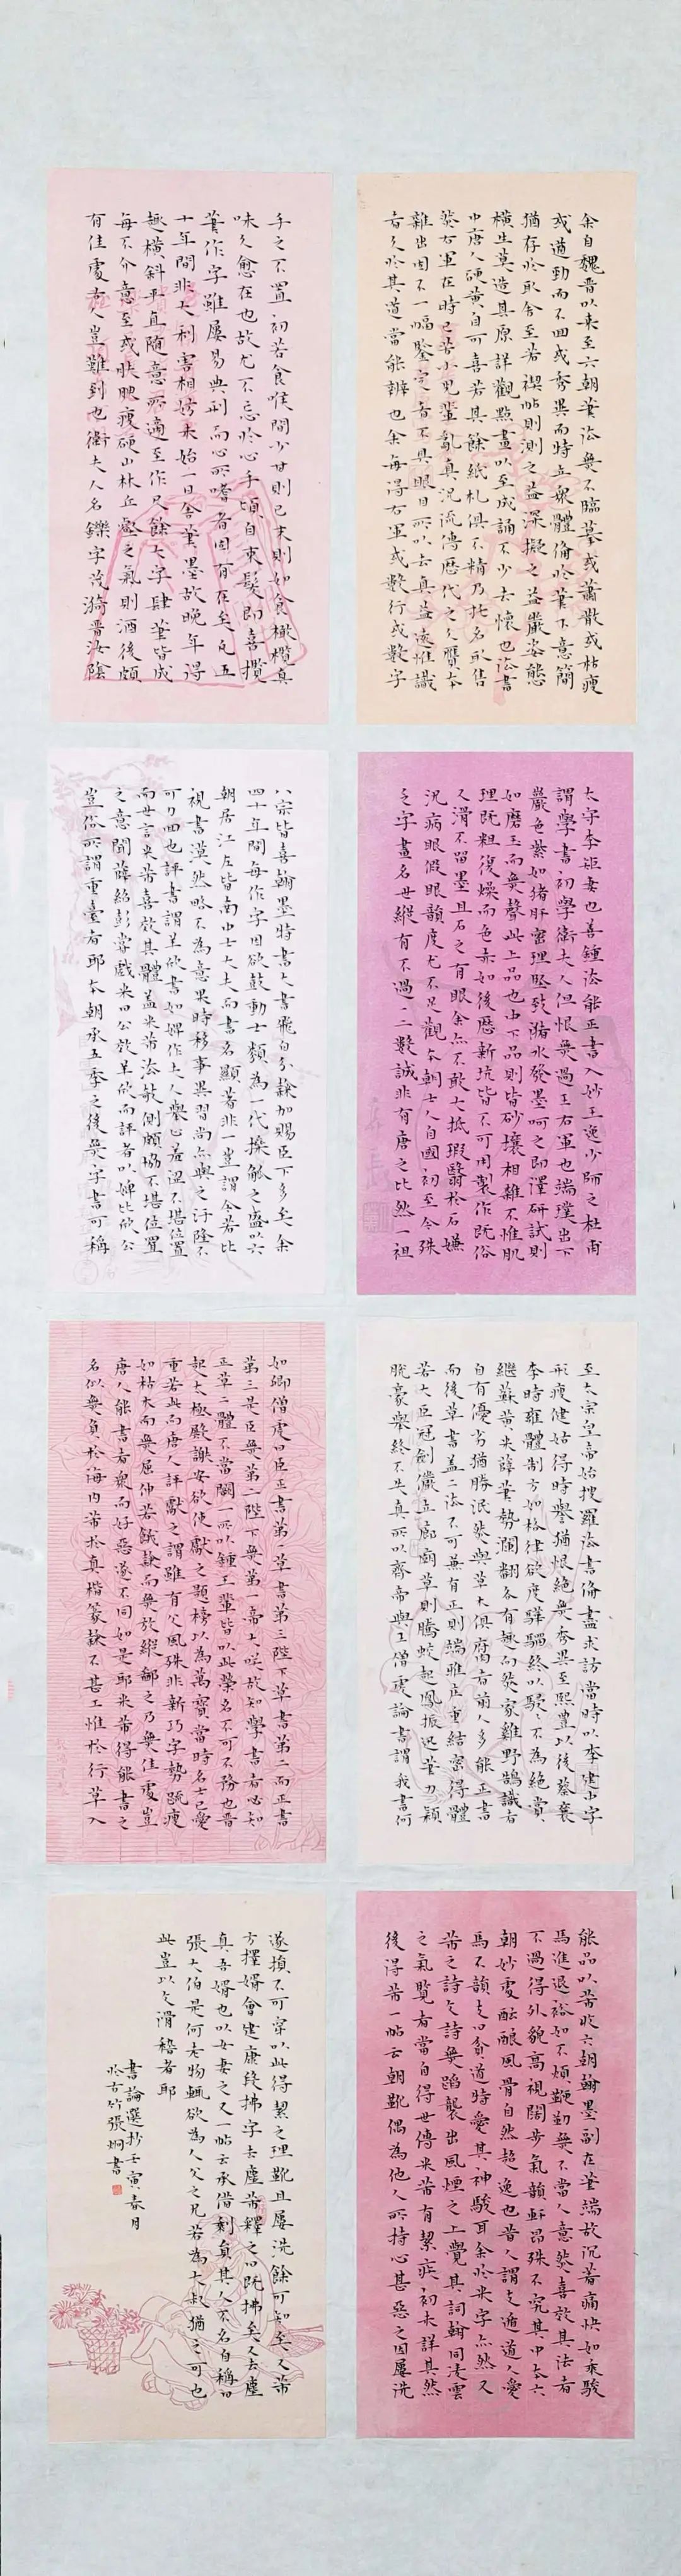 余自魏晋以来至六朝筆法無不臨摹或蕭散或枯瘦
或遒勁而不回或秀異而特立衆體備於筆下意簡
猶存於取舍至若禊帖則測之益深擬之益嚴姿態
橫生莫造其原詳觀點畫以至成誦不少去懷也法書
中唐人硬黃自可喜若其餘紙札俱不精乃托名取售
然右軍在時已苦小兒輩亂真況流傳歷代之久贗本
雜出固不一幅鑒定者不具眼目所以去真益遠惟識
者久於其道當能辨也余每得右軍或數行或數字
手之不置初若食喉間少甘則已末則如食橄欖真
味久愈在也故尤不忘於心手頃自束髮即喜攬
筆作字雖屢易典刑而心所嗜者固有在矣凡五
十年間非大利害相妨未始一日舍筆墨故晚年得
趣橫斜平直隨意所適至作尺餘大字肆筆皆成
每不介意至或膚腴瘦硬山林丘壑之氣則酒後頗
有佳處古人豈難到也衛夫人名鑠字茂漪晋汝陰
太守李矩妻也善鍾法能正書入妙王逸少師之杜甫
謂學書初學衛夫人但恨無過王右軍也端璞出下
巖色紫如猪肝密理堅致潴水發墨呵之即澤研試則
如磨玉而無聲此上品也中下品則皆砂壤相雜不惟肌
理既粗復燥而色赤如後歷新坑皆不可用製作既俗
又滑不留墨且石之有眼余亦不取大抵瑕翳於石嫌
況病眼假眼韻度尤不足觀本朝士人自國初至今殊
乏字畫名世縱有不過一二數誠非有唐之比然一祖
八宗皆喜翰墨特書大書飛白分隸加賜臣下多矣余
四十年間每作字因欲鼓動士類為一代操觚之盛以六
朝居江左皆南中士大夫而書名顯著非一豈謂今若比
視書漠然略不為意果時移事異習尚亦與之汙隆不
可力回也評書謂羊欣書如婢作夫人舉止羞澀不堪位置
而世言米芾喜效其體蓋米芾法欹側頗協不堪位置
之意聞薛紹彭嘗戲米曰公效羊欣而評者以婢比欣公
豈俗所謂重臺者耶本朝承五季之後無字書可稱
至太宗皇帝始搜羅法書備盡求訪當時以李建中字
形瘦健姑得時譽猶恨絕無秀異至熙豐以後蔡襄
李時雍體制方如格律欲度驊騮終以駸駸不為絕賞
繼蘇黃米薛筆勢瀾翻各有趣向然家雞野鵠識者
自有優劣猶勝泯然與草木俱腐者前人多能正書
而後草書蓋二法不可兼有正則端雅庄重結密得體
若大臣冠劍儼立廊廟草則騰蛟起鳳振迅筆力穎
脫豪舉終不失真所以齊帝與王僧虔論書謂我書何
如卿僧虔曰臣正書第一草書第三陛下草書第二而正書
第三是臣無第二陛下無第一帝大笑故知學書者必知
正草二體不當闕一所以鍾王輩皆以此榮名不可不務也晋
起太極殿謝安欲使獻之題榜以為萬寶當時名士已愛
重若此而唐人評獻之謂雖有父風殊非新巧字勢疏瘦
如枯木而無屈伸若餓隸而無放縱鄙之乃無佳處豈
唐人能書者衆而好惡遂不同如是耶米芾得能書之
名似無負於海内芾於真楷篆隸不甚工惟於行草入
能品以芾收六朝翰墨副在筆端故沉著痛快如乘駿
馬進退裕如不煩鞭勒無不當人意然喜效其法者
不過得外貌高視闊步氣韻軒昂殊不究其中本六
朝妙處酝釀風骨自然超逸也昔人謂支遁道人愛
馬不韻支曰貧道特愛其神駿耳余於米字亦然又
芾之詩文詩無蹈襲出風煙之上覺其詞翰同淩雲
之氣覽者當自得世傳米芾有潔疾初未詳其然
後得芾一帖云朝靴偶為他人所持心甚惡之因屢洗
遂損不可穿以此得潔之理靴且屢洗餘可知矣又芾
方擇婿會建康段拂字去塵芾釋之曰既拂矣又去塵
真吾婿也以女妻之又一帖云承借剩員其人不名自稱曰
張大伯是何老物輒欲為人父之兄若為大叔猶之可也
此豈以文滑稽者耶
書論選抄壬寅春月
於古竹張炯書